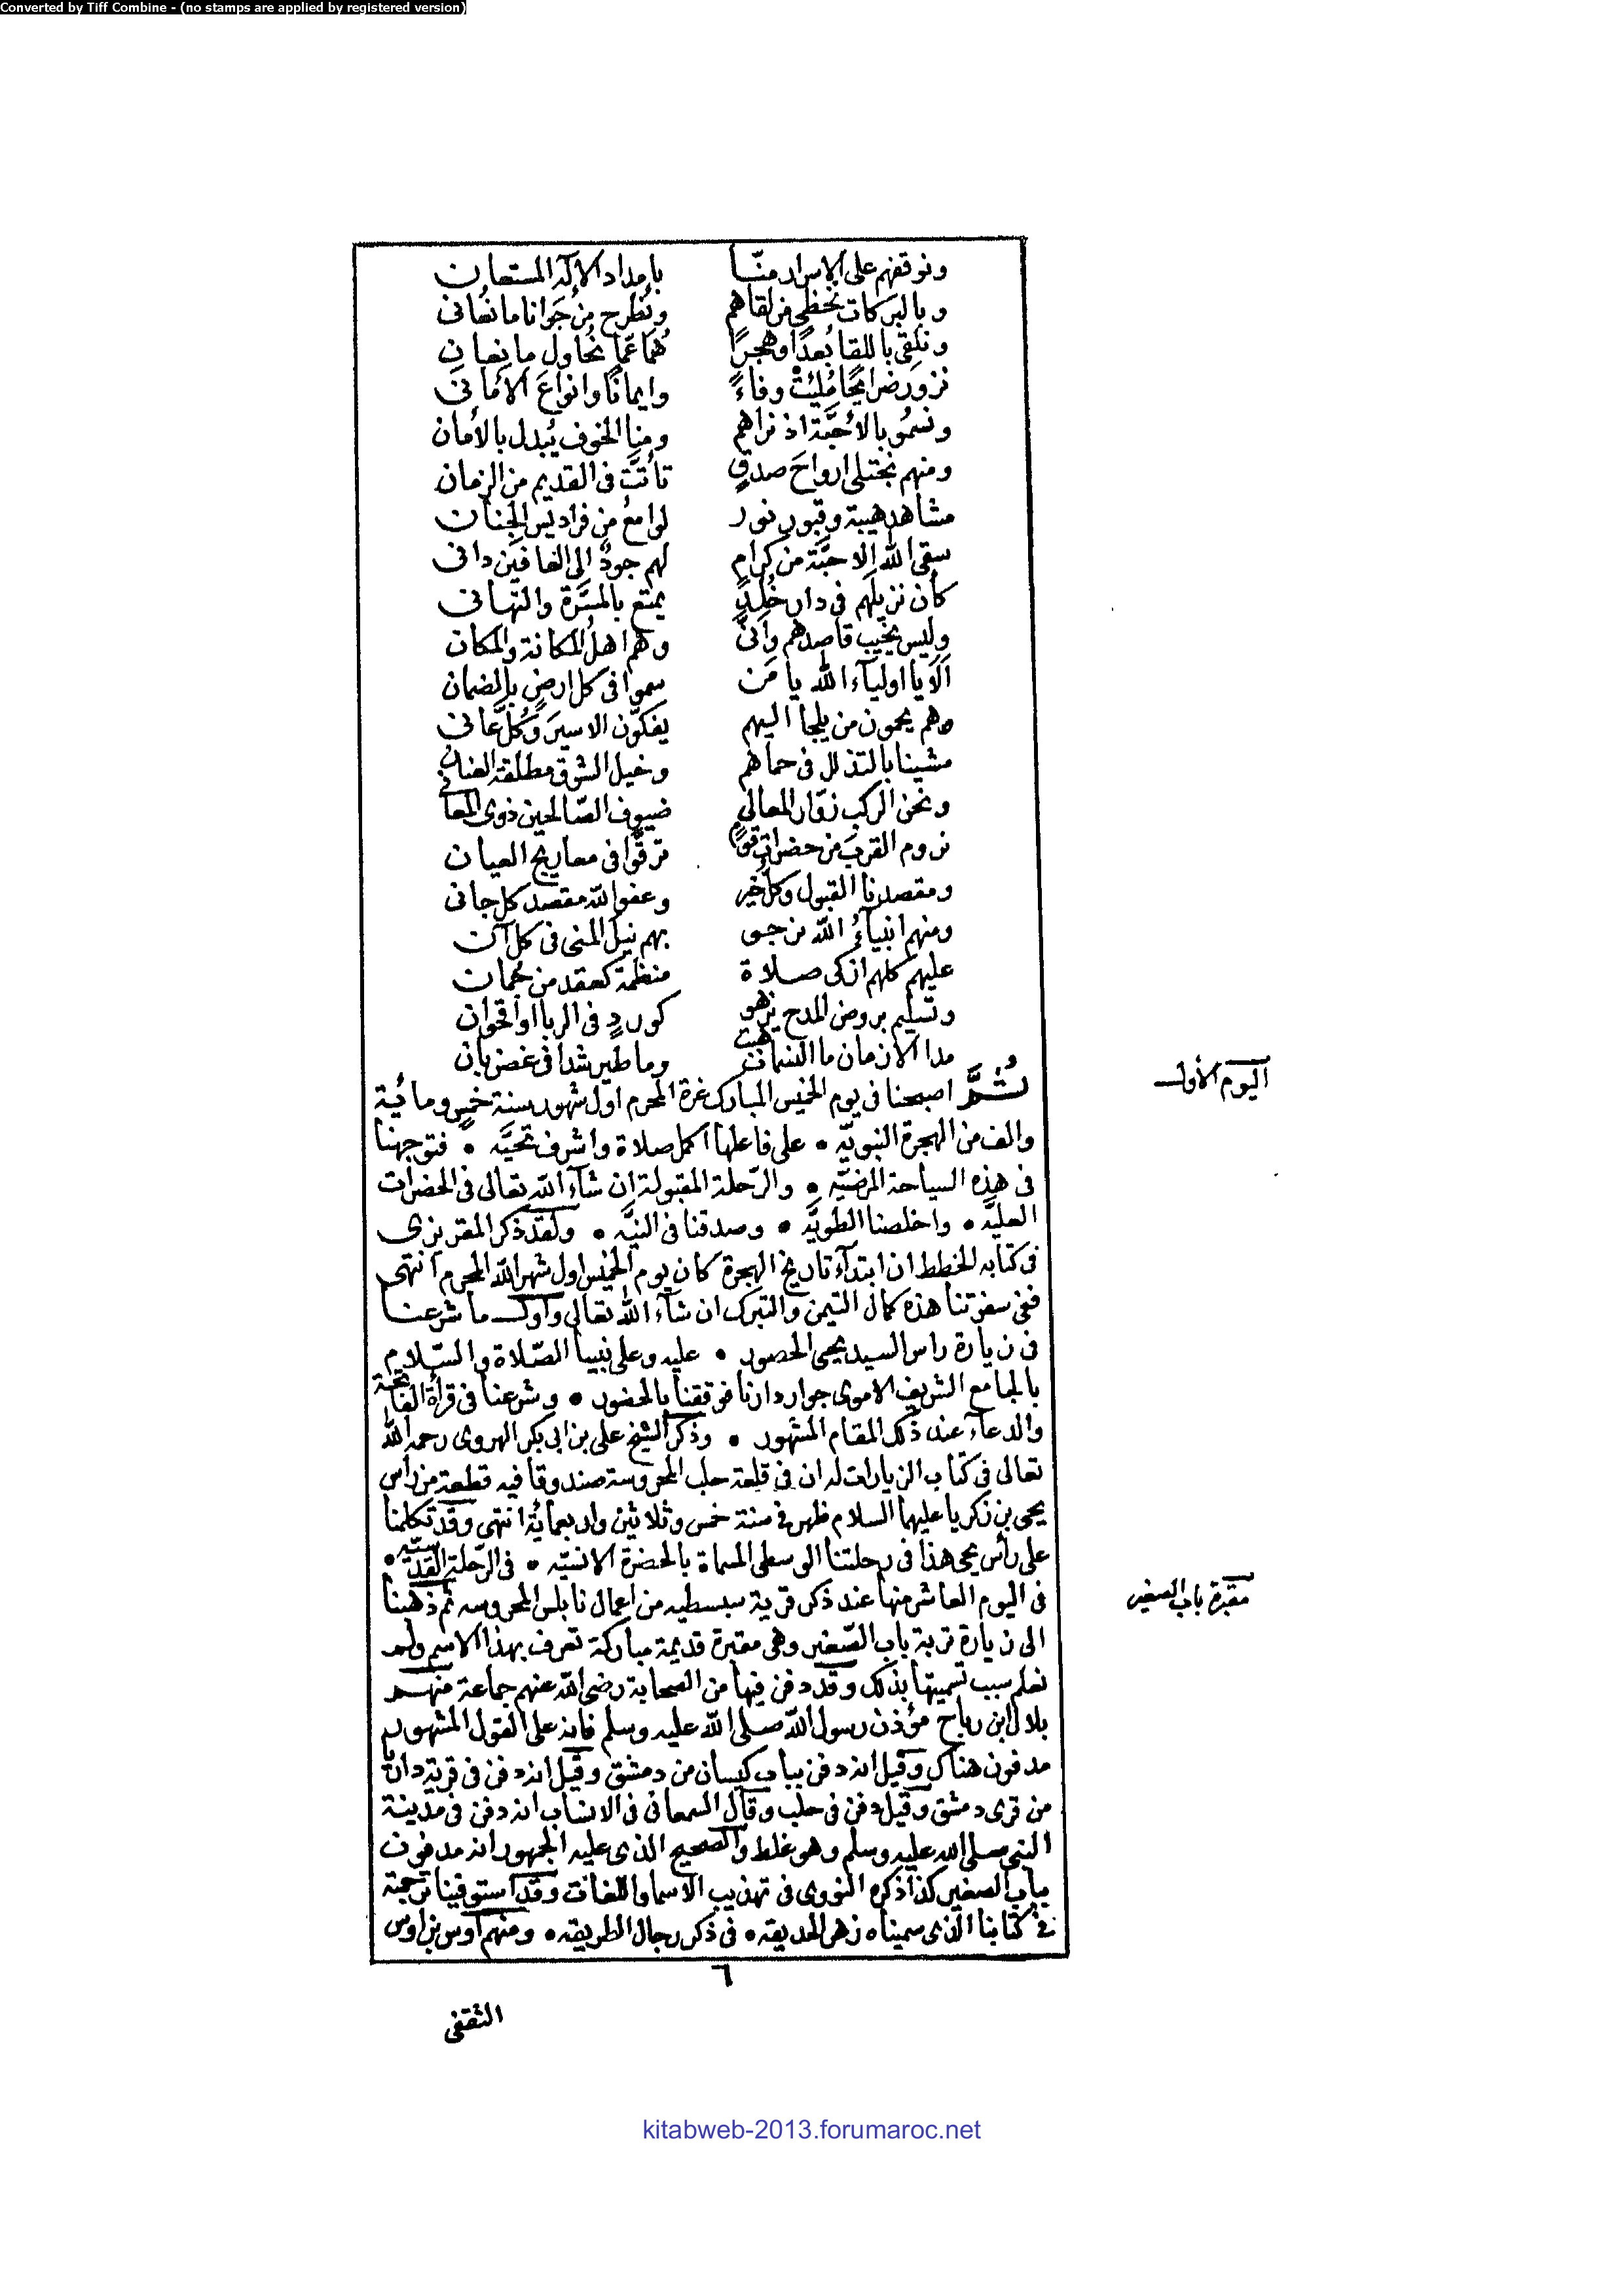 Converted by Tiff Combine - (no stamps are applied by registered version)
ونوقفهم على الاسرار منّا بامداد الاله المستعان
وبالبركات نحظى من لقاهم ونطرح من جوانا ما نعانى
ونلقى باللقا بُعدًا وهجرًا هما عمّا نحاول مانعان
نزور ضرايحًا مُلئتْ وفاءً وايمانًا وانواعَ الأمانى
ونسمُو بالأحبَّة اذ نراهم ومنا الخوف يُبدل بالأمان
ومنهم نجتلى ارواحَ صدقٍ تأتَّت فى القديم من الزمان
مشاهد هيبة وقبور نور لوامعُ من فراديس الجنان
سقى الله الاحبَّة من كرام لهم جودٌ الى العافين دانى
كأن نزيلهم فى دار خُلدٍ يمتع بالمسَرَّة والتهانى
وليس يخيب قاصدهم وأنَّى وهم اهلُ المكانة والمكان
اَلَا يا اولياء الله يا مَن سموا فى كل ارضٍ بالضمان
وهم يحمون من يلجا اليهم يفكّون الاسيرَ وكُلَّ عانى
مشينا بالتذلل فى حماهم وخيل الشوق مطلقة العنان
ونحن الركب زوّار المعالى ضيوف الصّالحين ذوى المعانى
نروم القربَ من حضرات قومٍ ترقَّوا فى معاريج العيان
ومقصدنا القبول وكل خير وعفو الله مقصد كل جانى
ومنهم انبياءُ الله نرجو بهم نيل المنى فى كل آن
عليهم كلهم ازكى صلاة منظمة كعقد من جمان
وتسليم بروض المدح يزهو كوردٍ فى الربا او اقحوان
مدا الازمان ما النسمات هبت وما طير شدا فى غصن بان
اليوم الأول
ثُمَّ اصبحنا فى يوم الخميس المبارك غرة المحرم اول شهور سنة خمسٍ ومائية
والف من الهجرة النبويّه • على فاعلها اكمل صلاة واشرف تحيَّه • فتوجهنا
فى هذه السياحة المرضيّه • والرّحلة المقبولة ان شاء الله تعالى فى الحضرات
العليَّه • واخلصنا الطويَّه • وصدقنا فى النيَّه • ولقد ذكر المقريزى
فى كتابه الخطط ان ابتداء تاريخ الهجرة كان يوم الخميس اول شهر الله المحرم انتهى
ففى سفرتنا هذه كمال التيمن والتبرك ان شاء الله تعالى واول ما شرعنا
فى زيارة راس السيد يحيى الحصور • عليه وعلى نبينا الصّلاة والسّلام
بالجامع الشريف الاموى جوار دارنا فوقفنا بالحضور • وشرعنا فى قرأة الفاتحة
والدعاء عند ذلك المقام المشهور • وذكر الشيخ على بن ابى بكر الهروى رحمه الله
تعالى فى كتاب الزيارات له ان فى قلعة حلب المحروسة صندوقا فيه قطعة من رأس
يحيى بن زكريا عليهما السلام ظهر فى سنة خمس وثلاثين واربعماية انتهى وقد تكلمنا
على رأس يحيى هذا فى رحلتنا الوسطى المسماة بالحضرة الانسيّه • فى الرّحلة القدسيّه •
فى اليوم العاشر منها عند ذكر قرية سبسطيه من اعمال نابلس المحروسه ثم ذهبنا
مقبرة باب الصغير
الى زيارة تربة باب الصّغير وهى مقبرة قديمة مباركة تعرف بهذا الاسم ولم
نعلم سبب تسميتها بذلك وقد دفن فيها من الصحابة رضى الله عنهم جماعة منهم
بلال ابن رباح مؤذن رسول الله صلى الله عليه وسلم فانه على القول المشهور
مدفون هناك وقيل انه دفن بباب كيسان من دمشق وقيل انه دفن فى قرية داريا
من قرى دمشق وقيل دفن فى حلب وقال السمعانى فى الانساب انه دفن فى مدينة
النبى صلى الله عليه وسلم وهو غلط والصحيح الذى عليه الجمهور انه مدفون
بباب الصغير كذا ذكره النووى فى تهذيب الاسما واللغات وقد استوفينا ترجمته
فى كتابنا الذى سميناه زهر الحديقه • فى ذكر رجال الطريقه • ومنهم اوس بن اوس
٦
الثقفى
kitabweb-2013.forumaroc.net